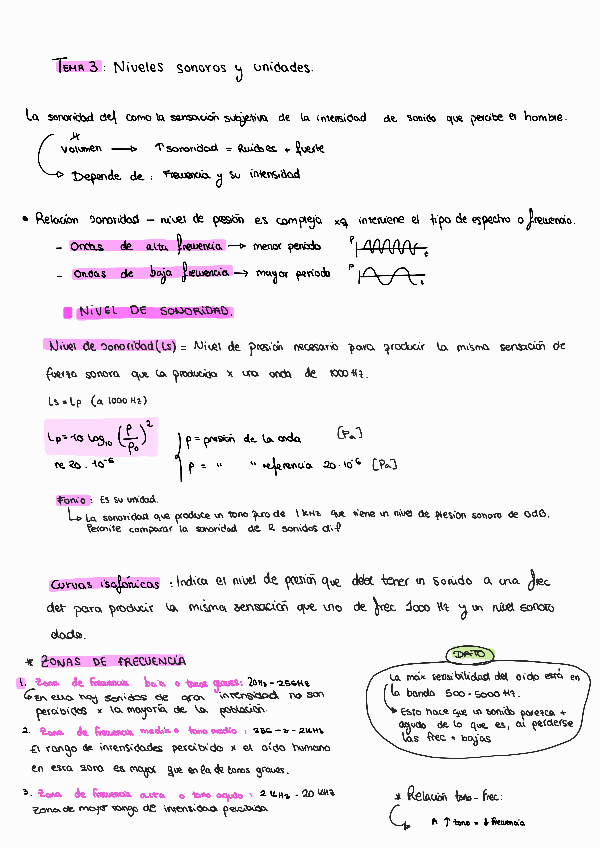 TEMA 3: Niveles sonoros y unidades.
La sonoridad def como la sensación subjetiva de la intensidad de sonido que percibe el hombre.
Volumen → ↑ sonoridad = Ruidoes + fuerte
Depende de: Frecuencia y su intensidad
• Relación sonoridad - nivel de presión es compleja xq interviene el tipo de espectro o frecuencia.
- Ondas de alta frecuencia → menor periodo P t
- Ondas de baja frecuencia → mayor periodo P t
NIVEL DE SONORIDAD.
Nivel de sonoridad (Ls) = Nivel de presión necesario para producir la misma sensación de
fuerza sonora que la producida x una onda de 1000 Hz.
Ls = Lp (a 1000 Hz)
Lp = 10 log₁₀ (P/P₀)² p = presión de la onda [Pa]
re 20 · 10⁻⁶ p = " " referencia 20·10⁻⁶ [Pa]
Fonio: Es su unidad.
↳ La sonoridad que produce un tono puro de 1 kHz que tiene un nivel de presión sonoro de 0dB.
Permite comparar la sonoridad de 2 sonidos dif
Curvas isofónicas: Indica el nivel de presión que debe tener un sonido a una frec
det para producir la misma sensación que uno de frec 1000 Hz y un nivel sonoro
dado.
* ZONAS DE FRECUENCIA
1. Zona de frecuencia baja o tonos graves: 20Hz - 256Hz
↳ En ella hay sonidos de gran intensidad no son
percibidos x la mayoría de la población.
2. Zona de frecuencia media o tono medio: 256 - 2kHz
El rango de intensidades percibido x el oído humano
en esta zona es mayor que en la de tonos graves.
3. Zona de frecuencia alta o tono agudo: 2 kHz - 20 kHz
Zona de mayor rango de intensidad percibida
DATO
La máx sensibilidad del oído está en
la banda 500 - 5000 Hz.
↳ Esto hace que un sonido parezca +
agudo de lo que es, al perderse
las frec + bajas
* Relación tono - Frec:
A ↑ tono = ↓ frecuencia